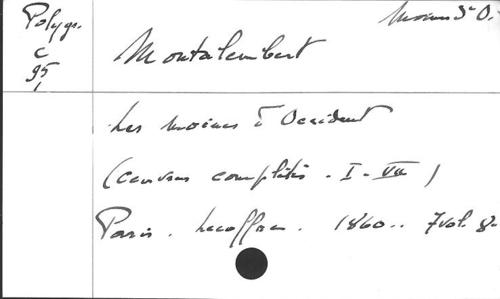 Polygr.
C
95
1
Moines d'O.
Montalembert
Les moines d'Occident
(oeuvres complètes - I - VII)
Paris. Lecoffre. 1860.. 7 vol. 8-